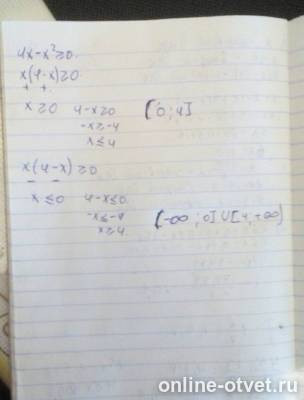 4x-x²≥0.
x(4-x)≥0.
+ +
x≥0 4-x≥0 [0;4]
-x≥-4
x≤4
x(4-x)≥0
- -
x≤0 4-x≤0.
-x≤-4 (-∞;0]U[4,+∞)
x≥4.
online-otvet.ru